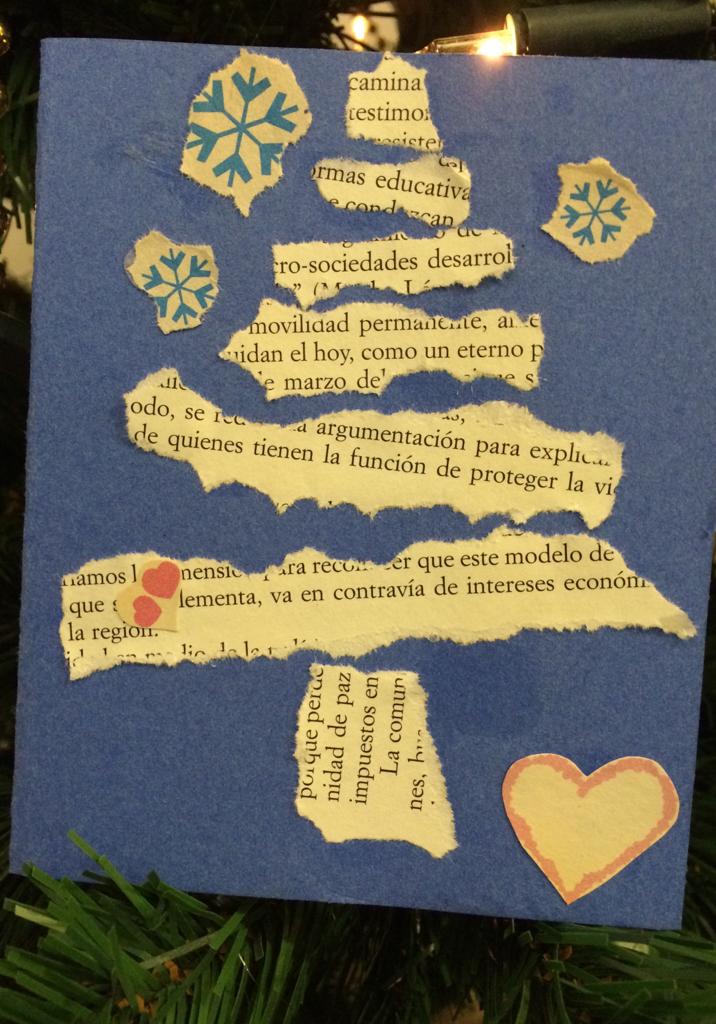 camina
testimo
resister
ormas educativa
e conduzcan
cro-sociedades desarrol
movilidad permanente,
uidan el hoy, como un eterno p
e marzo de
odo, se argumentación para explicar
de quienes tienen la función de proteger la vi
namos l mensi para recon er que este modelo de
que s lementa, va en contravía de intereses económi
la región.
porque perde
nidad de paz
impuestos en
La comun
nes,